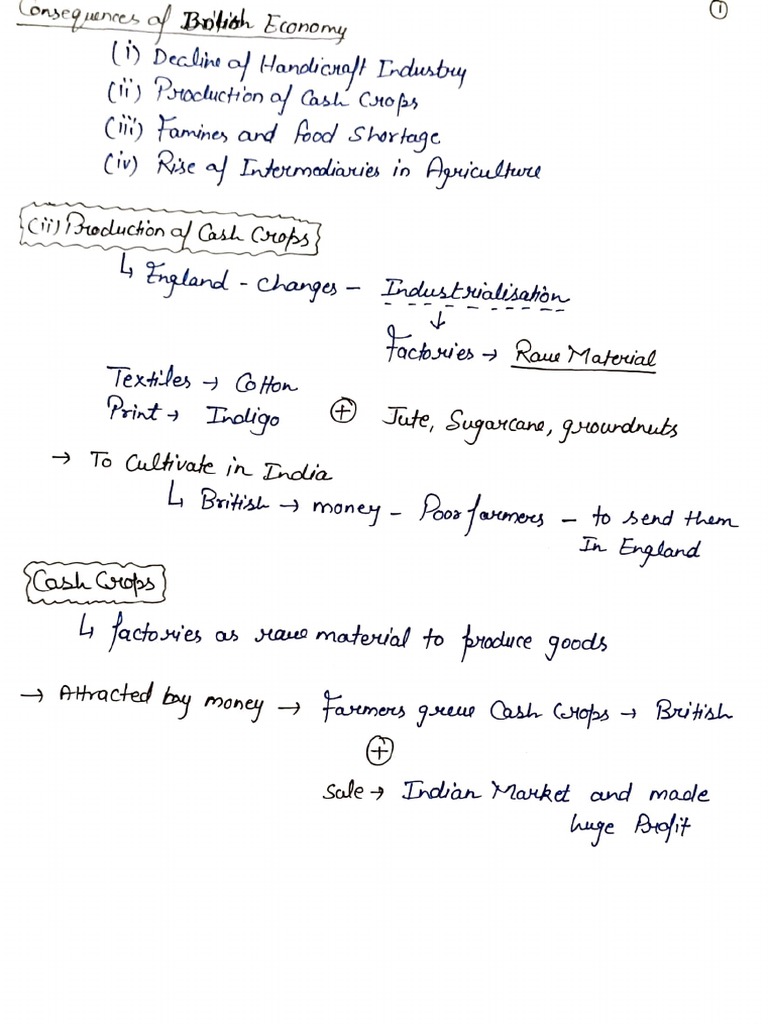 Consequences of British Economy ①
(i) Decline of Handicraft Industry
(ii) Production of Cash Crops
(iii) Famines and food Shortage
(iv) Rise of Intermediaries in Agriculture
(ii) Production of Cash Crops
↳ England - changes - Industrialisation
↓
Factories → Raw Material
Textiles → Cotton
Print → Indigo ⊕ Jute, Sugarcane, groundnuts
→ To Cultivate in India
↳ British → money - Poor farmers - to send them
In England
Cash Crops
↳ factories as raw material to produce goods
→ Attracted by money → Farmers grew Cash Crops → British
⊕
Sale → Indian Market and made
huge Profit